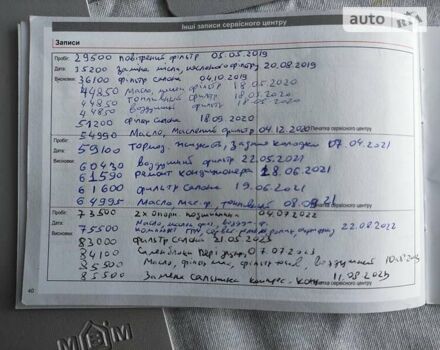 auto RIA
Інші записи сервісного центру
Записи
Пробіг: 29500 повітряний фільтр 05.05.2019
Дата: 35200 заміна масла, масляного фільтру 20.08.2019
Виконавець: 36100 фільтр салона 04.10.2019
44850 Масло, фильтр 18.05.2020
44850 Топливный фильтр 18.05.2020
44850 воздушный фильтр 18.05.2020
51200 фильтр салона 18.09.2020
54990 Масло, Масляный фильтр 04.12.2020
Печатка сервісного центру
Пробіг: 59100 Тормоз. жидкость, Задние колодки 07.04.2021
Дата:
Виконавець: 60430 воздушный фильтр 22.05.2021
61590 ремонт кондиционера 18.06.2021
61600 фильтр салона 19.06.2021
64995 Масло, мас.ф, топливный 08.09.21
Печатка сервісного центру
Пробіг: 73500 2х опорн. подшипника 04.07.2022
Дата: 75500 Масло, 22.08.2022
Виконавець: 83000 фильтр салона 21.05.2023
84100 07.07.2023
85500 Масло, фільтр воздушний
85500 Замена сальника компрес. 11.08.2023
Печатка сервісного центру
40
МВМ